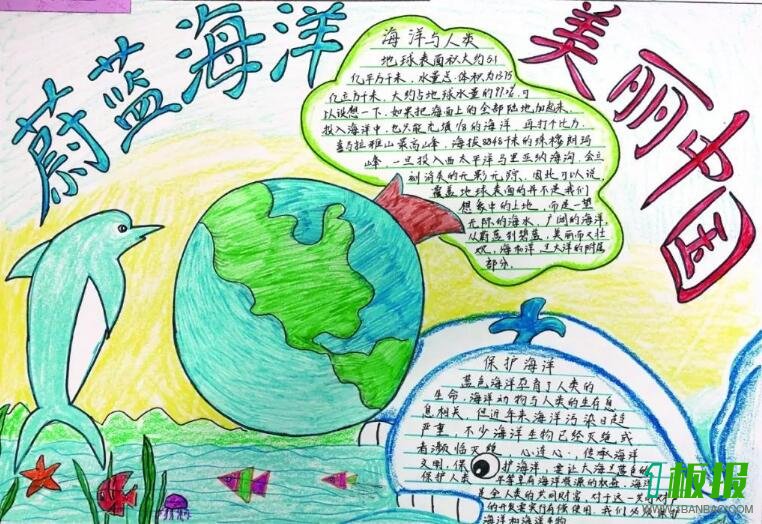 蔚蓝海洋
美丽中国
海洋与人类
地球表面积大约51
亿平方千米，水量总体积为1375
亿立方千米，大约占地球水量的97.2%，可
以设想一下，如果把海面上的全部陆地加起来，
投入海洋中，也只能充填1/8的海洋，再打个比方，
喜马拉雅山最高山峰，海拔8848千米的珠穆朗玛
峰，一旦投入西太平洋马里亚纳海沟，会立
刻消失的无影无踪，因此可以说，
覆盖地球表面的并不是我们
想象中的土地，而是一望
无际的海水，广阔的海洋，
从蔚蓝到碧蓝，美丽而又壮
观，海和洋是大洋的附属
部分。
保护海洋
蓝色海洋孕育了人类的
生命，海洋动物与人类的生存息
息相关，但近年来海洋污染日趋
严重，不少海洋生物已经灭绝或
者濒临灭绝，心连心，传承海洋
文明，保护海洋，要让大海
保护人类
不等章有海洋资源的权益，海洋
是全人类的共同财富，对于这一
的开发要实行有偿使用，我们必
海洋和海洋生物
板报
WWW.1BANBAO.COM